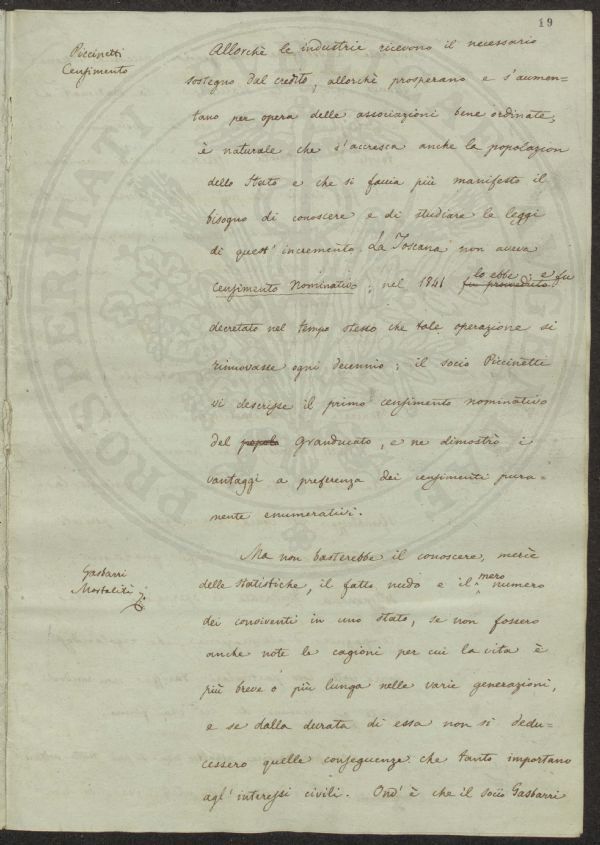 19
Piccinetti
Censimento
Allorchè le industrie ricevono il necessario
sostegno dal credito, allorchè prosperano e s'aumen=
tano per opera delle associazioni bene ordinate,
è naturale che s'accresca anche la popolazion
dello Stato e che si faccia più manifesto il
bisogno di conoscere e di studiare le leggi
di quest' incremento. La Toscana non aveva
lo ebbe; e fu
Censimento Nominativo; nel 1841 fu proveduto
decretato nel tempo stesso che tale operazione si
rinnovasse ogni decennio; il socio Piccinetti
vi descrisse il primo censimento nominativo
del popolo Granducato, e ne dimostrò i
vantaggi a preferenza dei censimenti pura=
mente enumerativi.
Gasbarri
Mortalità
Ma non basterebbe il conoscere, mercè
mero
delle statistiche, il fatto nudo e il numero
dei conviventi in uno stato, se non fossero
anche note le cagioni per cui la vita è
più breve o più lunga nelle varie generazioni,
e se dalla durata di essa non si dedu=
cessero quelle conseguenze che tanto importano
agl' interessi civili. Ond' è che il socio Gasbarri